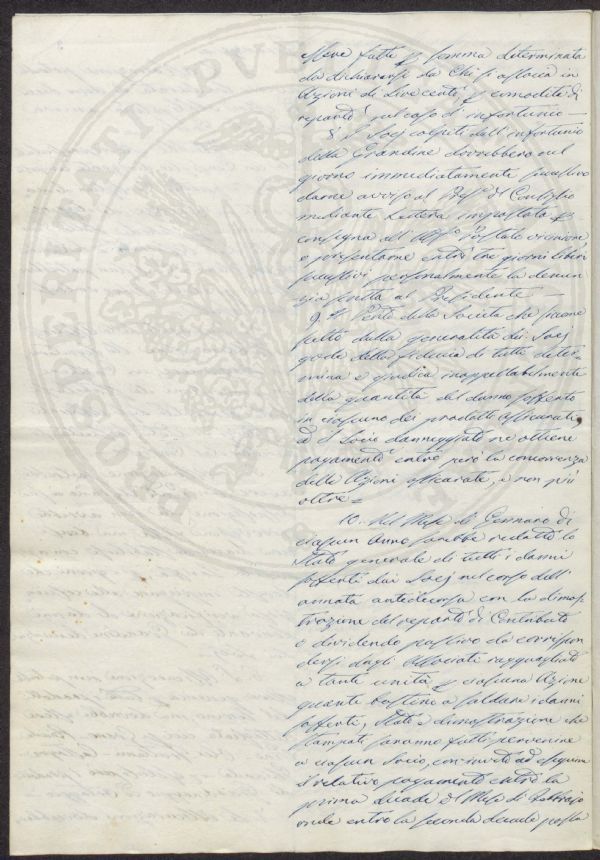 essere fatte p somma determinata
da dichiararsi da Chi si associa in
Azioni di Lire cento p comodità di
reparto nel caso d'infortunio —
8. I Socj colpiti dall'infortunio
della Grandine dovrebbero nel
giorno immediatamente successivo
darne avviso al Pres.e di Consiglio
mediante Lettera impostata p
consegna all'Uff.o postale vicino
o presentarne entro tre giorni
successivi personalmente la denun
zia scritta al Presidente —
9. Il Perito della Società che
fatto dalla generalità dei Socj
gode della fiducia di tutti deter-
mina e giudica inappellabilmente
della quantità del danno sofferto
in ciascuno dei prodotti assicurati,
ed il Socio danneggiato ne ottiene
pagamento entro però la concorrenza
delle Azioni assicurate, e non più
oltre =
10. Nel Mese di Gennaro di
ciascun Anno sarebbe redatto lo
Stato generale di tutti i danni
sofferti dai Socj nel corso dell'
annata antidecorsa con la dimos-
trazione del reparto di Contributo
o dividendo passivo da corrispon
dersi dagli Associati ragguagliato
a tante unità p ciascuna Azione
quante bastino a saldare i danni
sofferti, Stato e dimostrazione che
stampati saranno fatti pervenire
a ciascun Socio, con invito ad eseguire
il relativo pagamento entro la
prima decade del Mese di Febbrajo
onde entro la seconda decade possa
PROSPERITATI PVBLICAE